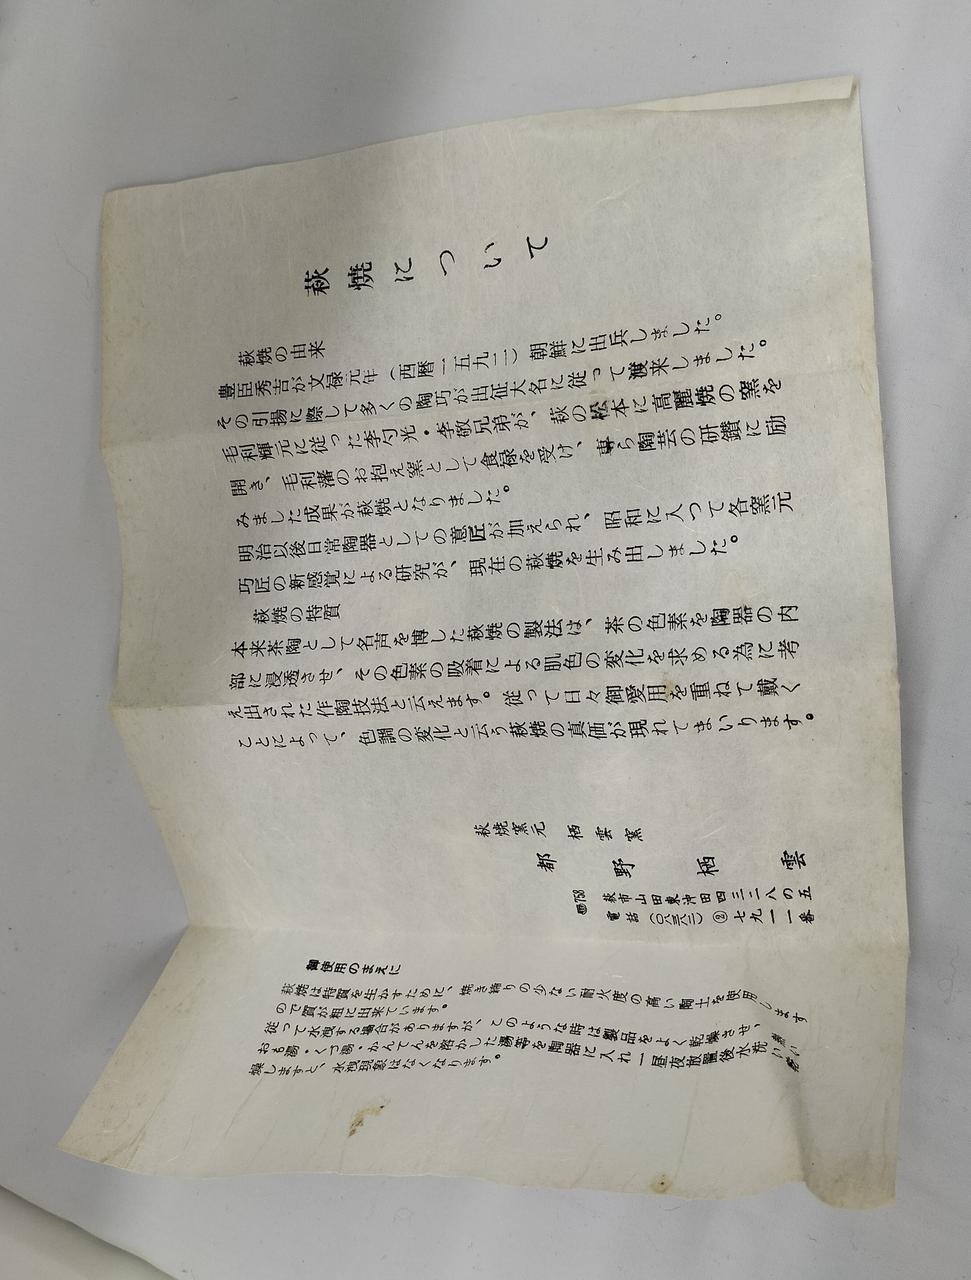 萩焼について
萩焼の由来
豊臣秀吉が文禄元年（西暦一五九二）朝鮮に出兵しました。
その引揚に際して多くの陶巧が出征大名に従って渡来しました。
毛利輝元に従った李勺光・李敬兄弟が、萩の松本に高麗焼の窯を
開き、毛利藩のお抱え窯として食禄を受け、専ら陶芸の研鑽に励
みました成果が萩焼となりました。
明治以後日常陶器としての意匠が加えられ、昭和に入って各窯元
巧匠の新感覚による研究が、現在の萩焼を生み出しました。
萩焼の特質
本来茶陶として名声を博した萩焼の製法は、茶の色素を陶器の内
部に浸透させ、その色素の吸着による肌色の変化を求める為に考
え出された作陶技法と云えます。従って日々御愛用を重ねて戴く
ことによって、色調の変化と云う萩焼の真価が現れてまいります。
萩焼窯元 栖雲窯
都野栖雲
〒758 萩市山田東沖田四三二八の五
電話（〇八三八二）②七九一一番
御使用のまえに
萩焼は特質を生かすために、焼き締りの少ない耐火度の高い陶土を使用します
ので質が粗に出来ています。
従って水洩する場合がありますが、このような時は製品をよく乾燥させ、
おも湯・くづ湯・かんてんを溶かした湯等を陶器に入れ一昼夜放置後水洗い乾
燥しますと、水洩現象はなくなります。